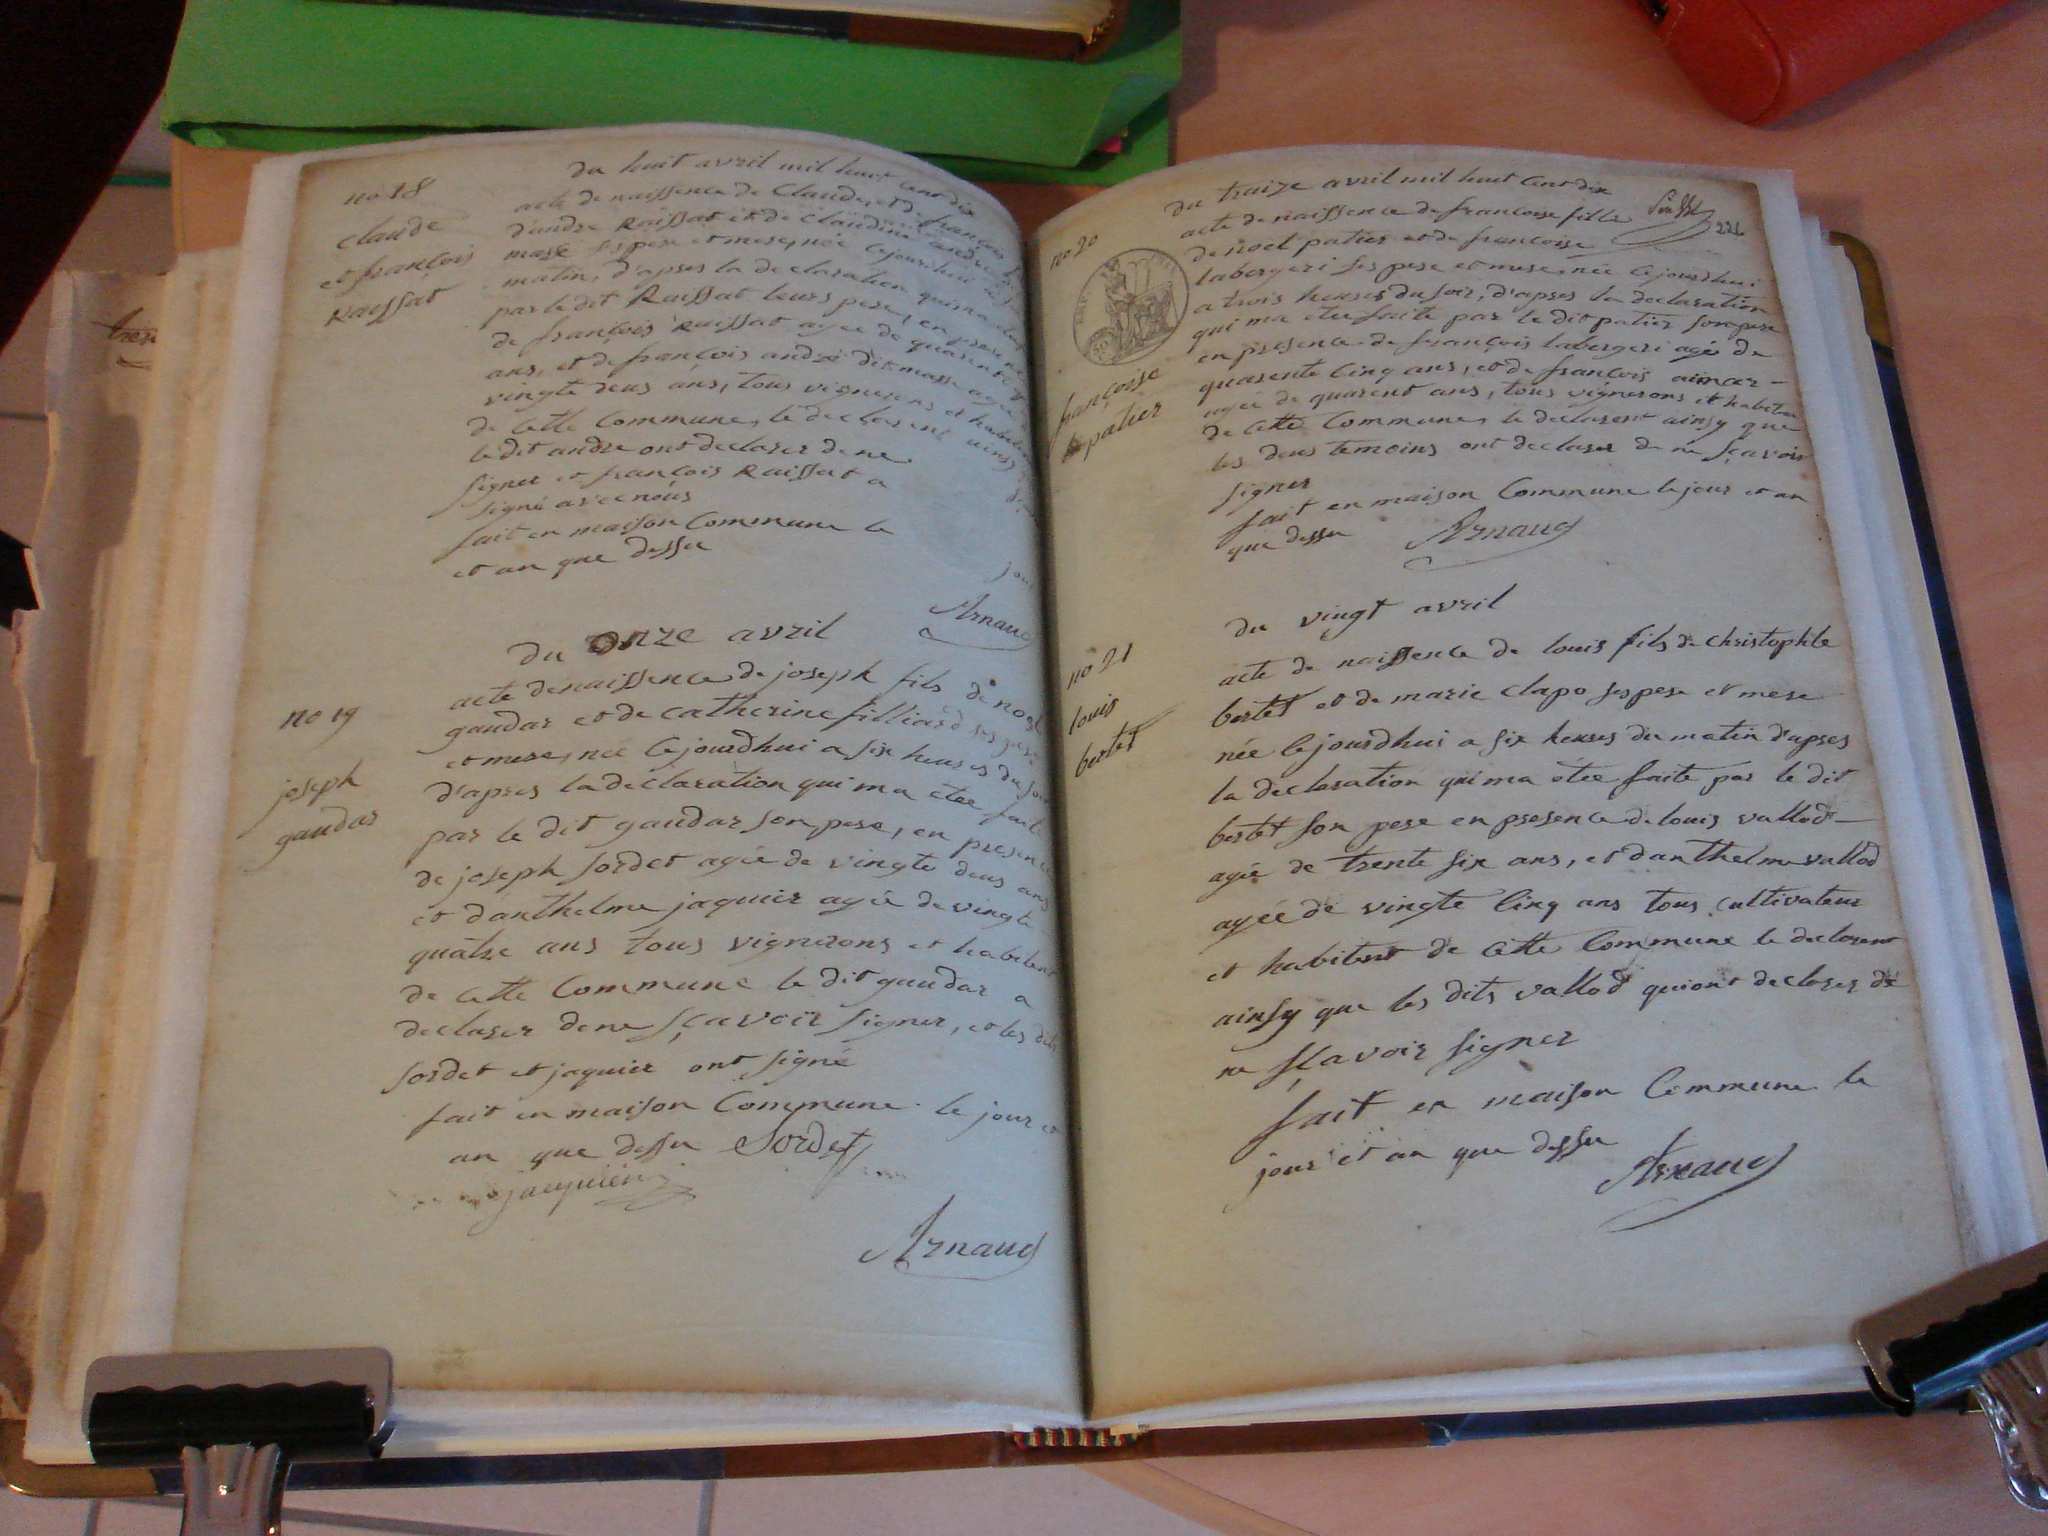 du huit avril mil huit cent dix
no 18
claude
et françois
Raissat
acte de naissence de Claude et de françois
d'andre Raissat et de Claudine andre
masse ses pere et mere, née cejourdhui
matin, d'apres la declaration qui m'a
par le dit Raissat leurs pere, en presence
de françois Raissat agée de quarente
ans, et de françois andre dit masse agée
vingte deus ans, tous vignerons et habitent
de cette Commune, le declarent ainsy
le dit andre ont declarer de ne
signer et françois Raissat a
signé avec nous
fait en maison Commune le
jour
et an que dessu
Arnaud
du onze avril
no 19
joseph
gaudar
acte denaissence de joseph fils de noel
gaudar et de catherine filliard ses pere
et mere, née cejourdhui a six heures du soir
d'apres la declaration qui ma etee faite
par le dit gaudar son pere, en presence
de joseph sordet agée de vingte deus ans
et danthelme jaquier agée de vingte
quatre ans tous vignerons et habitent
de cette Commune le dit gaudar a
declarer de ne sçavoir signer, et les dits
sordet et jaquier ont signé
fait en maison Commune le jour et
an que dessu Sordet
jacquier
Arnaud
du traize avril mil huit cent dix
221
no 20
françoise
patier
acte de naissence de francoise fille
de noel patier et de francoise
labergeri ses pere et mere, née cejourdhui
a trois heures du soir, d'apres la declaration
qui ma etee faite par le dit patier son pere
en presence de françois labergeri agée de
quarente cinq ans, et de françois aimer -
agée de quarent ans, tous vignerons et habiten
de cette Commune, le declarent ainsy que
les deus temoins ont declarer de ne sçavoir
signer
fait en maison Commune le jour et an
que dessu Arnaud
du vingt avril
no 21
louis
bertet
acte de naissence de louis fils de christophle
bertet et de marie clapo ses pere et mere
née cejourdhui a six heures du matin d'apres
la declaration qui ma étée faite par le dit
bertet son pere en presence de louis vallod -
agée de trente six ans, et danthelme vallod
agée de vingte cinq ans tous cultivateur
et habitent de cette Commune le declarent
ainsy que les dits vallod qui ont declarer de
ne sçavoir signer
fait en maison Commune le
jour et an que dessu
Arnaud